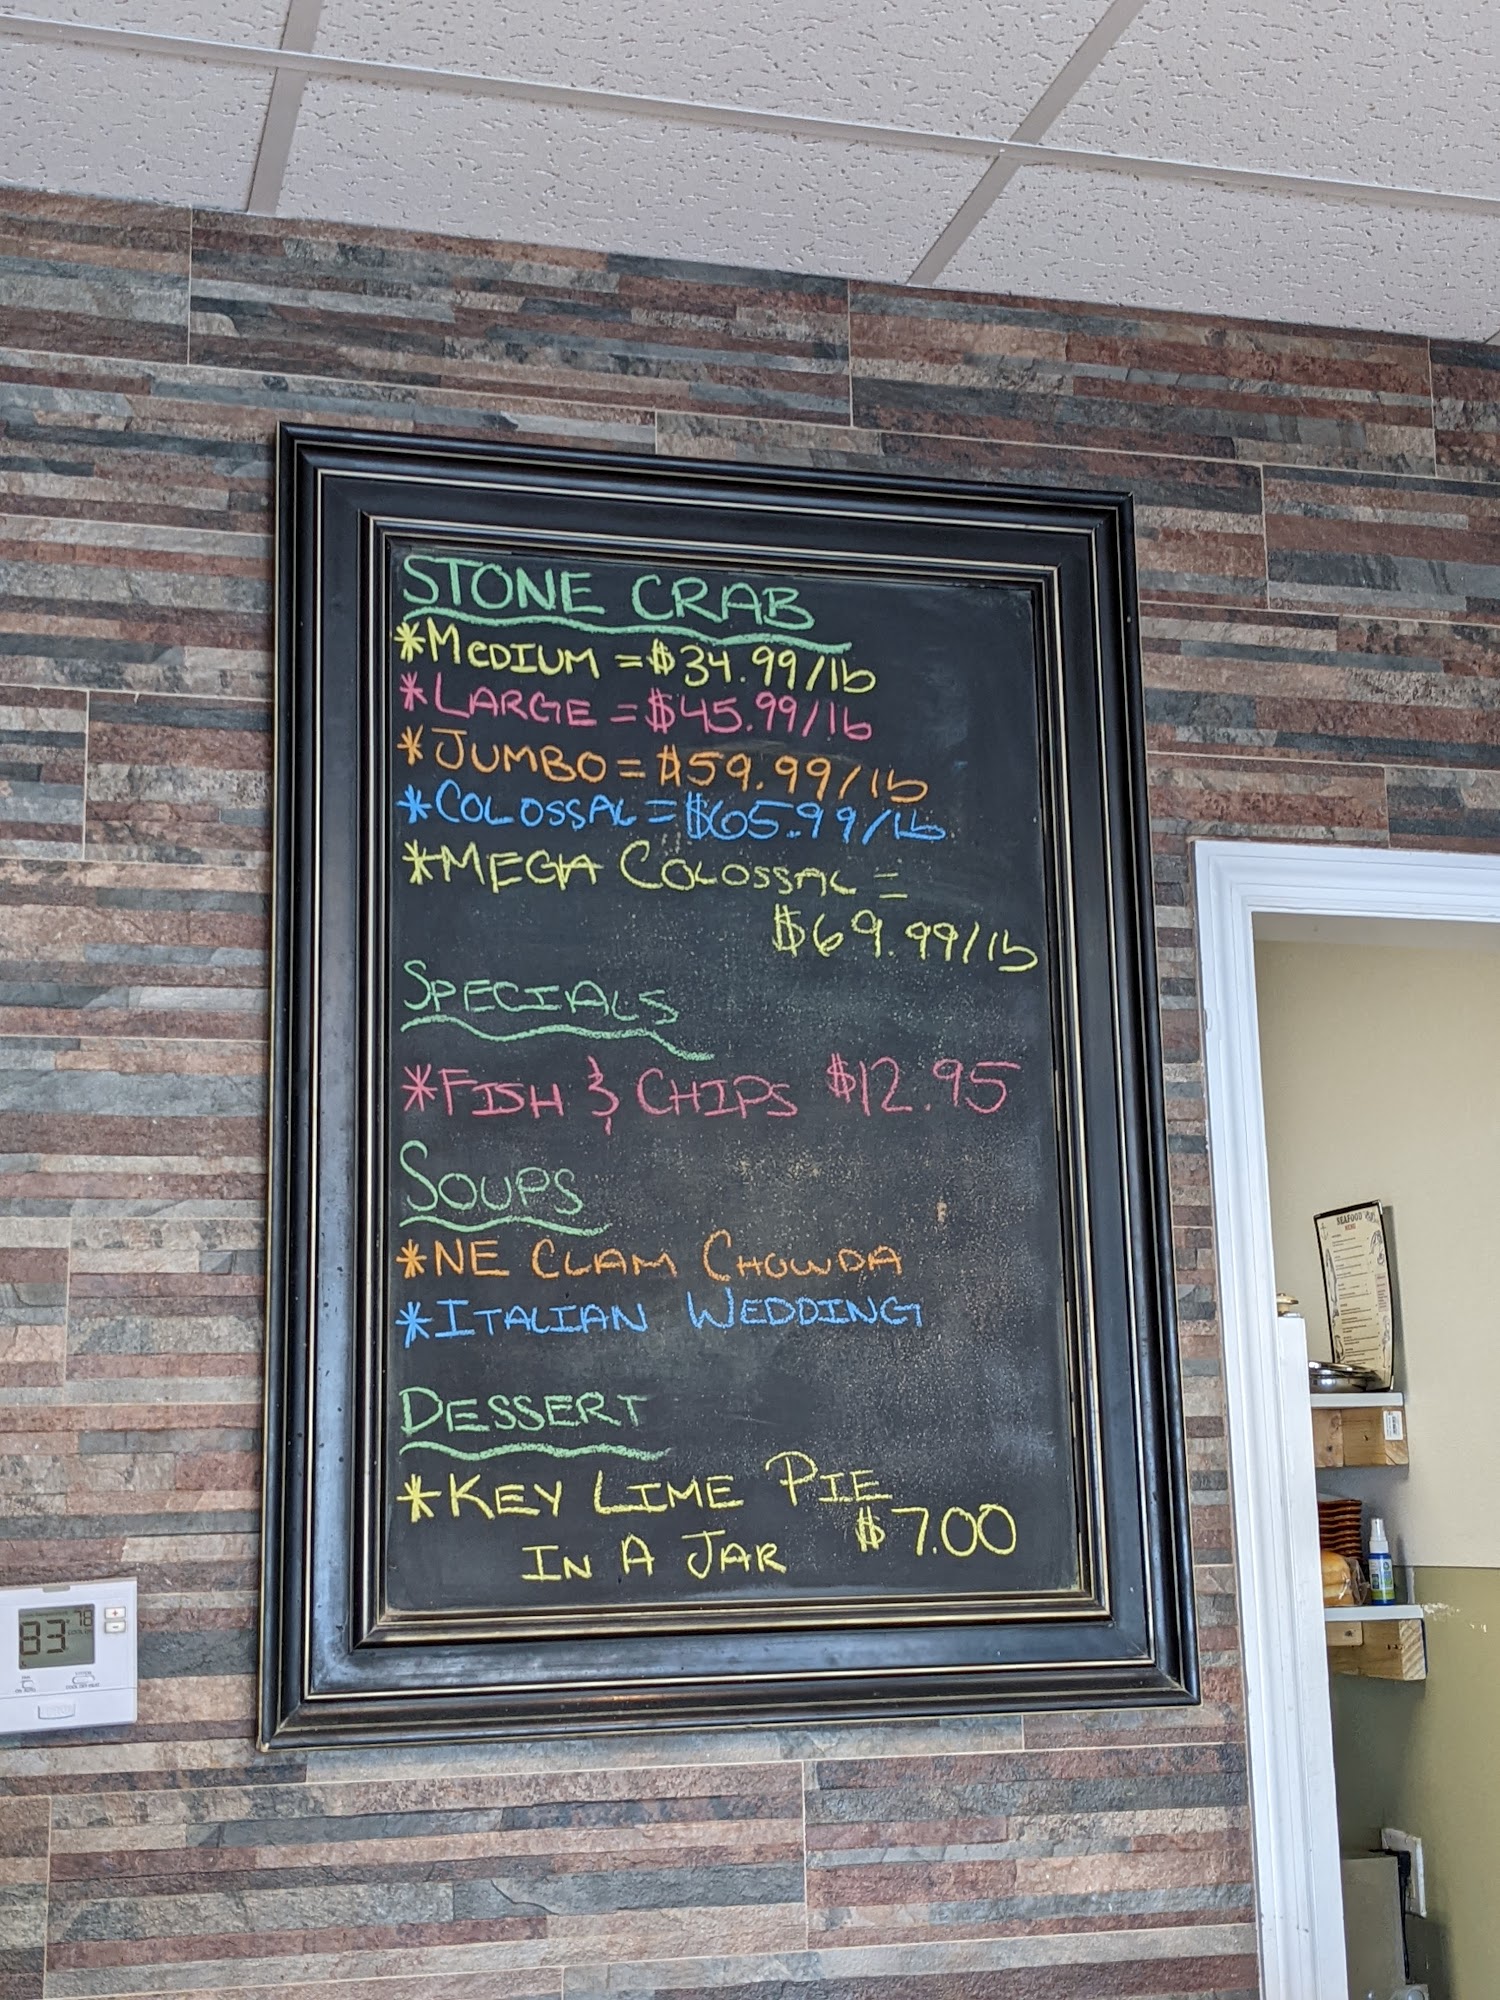 STONE CRAB
*MEDIUM = $34.99/lb
*LARGE = $45.99/lb
*JUMBO = $59.99/lb
*COLOSSAL = $65.99/lb
*MEGA COLOSSAL =
$69.99/lb
SPECIALS
*FISH & CHIPS $12.95
SOUPS
*NE CLAM CHOWDA
*ITALIAN WEDDING
DESSERT
*KEY LIME PIE
IN A JAR $7.00
83° 78
SEAFOOD
MENU